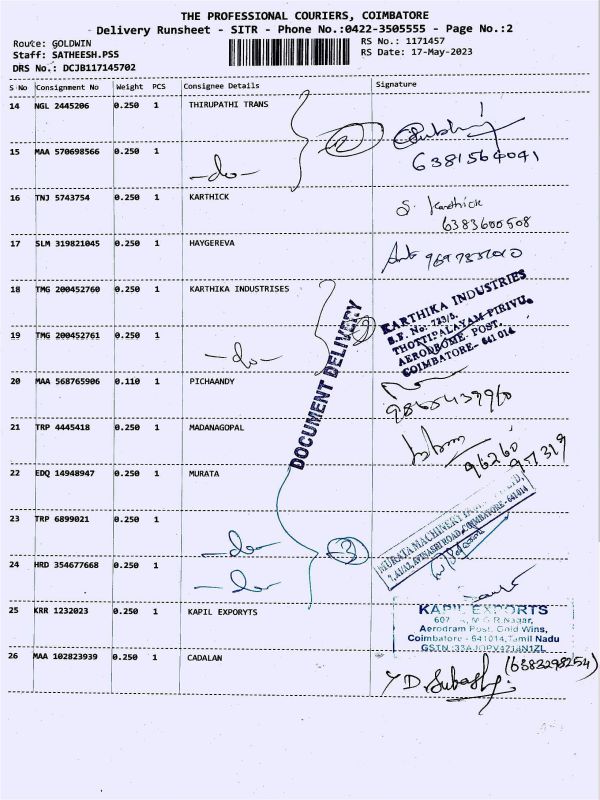 THE PROFESSIONAL COURIERS, COIMBATORE
Delivery Runsheet - SITR - Phone No.:0422-3505555 - Page No.:2
Route: GOLDWIN RS No.: 1171457
Staff: SATHEESH.PSS RS Date: 17-May-2023
DRS No.: DCJB117145702
S No Consignment No Weight PCS Consignee Details Signature
14 NGL 2445206 0.250 1 THIRUPATHI TRANS
15 MAA 570698566 0.250 1
-do-
6381564041
16 TNJ 5743754 0.250 1 KARTHICK S. Karthick
6383600508
17 SLM 319821045 0.250 1 HAYGEREVA
18 TMG 200452760 0.250 1 KARTHIKA INDUSTRISES
KARTHIKA INDUSTRIES
S.F. No: 723/5,
THOTTIPALAYAM PIRIVU,
AERODROME POST,
COIMBATORE- 641 014
19 TMG 200452761 0.250 1
-do-
DOCUMENT DELIVERY
20 MAA 568765906 0.110 1 PICHAANDY
21 TRP 4445418 0.250 1 MADANAGOPAL
96260
22 EDQ 14948947 0.250 1 MURATA
23 TRP 6899021 0.250 1
-do-
3
24 HRD 354677668 0.250 1
-do-
25 KRR 1232023 0.250 1 KAPIL EXPORYTS
KAPIL EXPORTS
Aerodram Post, Gold Wins,
Coimbatore - 641014, Tamil Nadu
26 MAA 102823939 0.250 1 CADALAN
(6383298254)